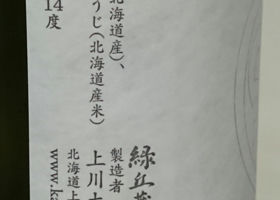 北海道産)、
うじ(北海道産米)
14度
緑丘蔵
製造者
上川大
北海道上
www.ka